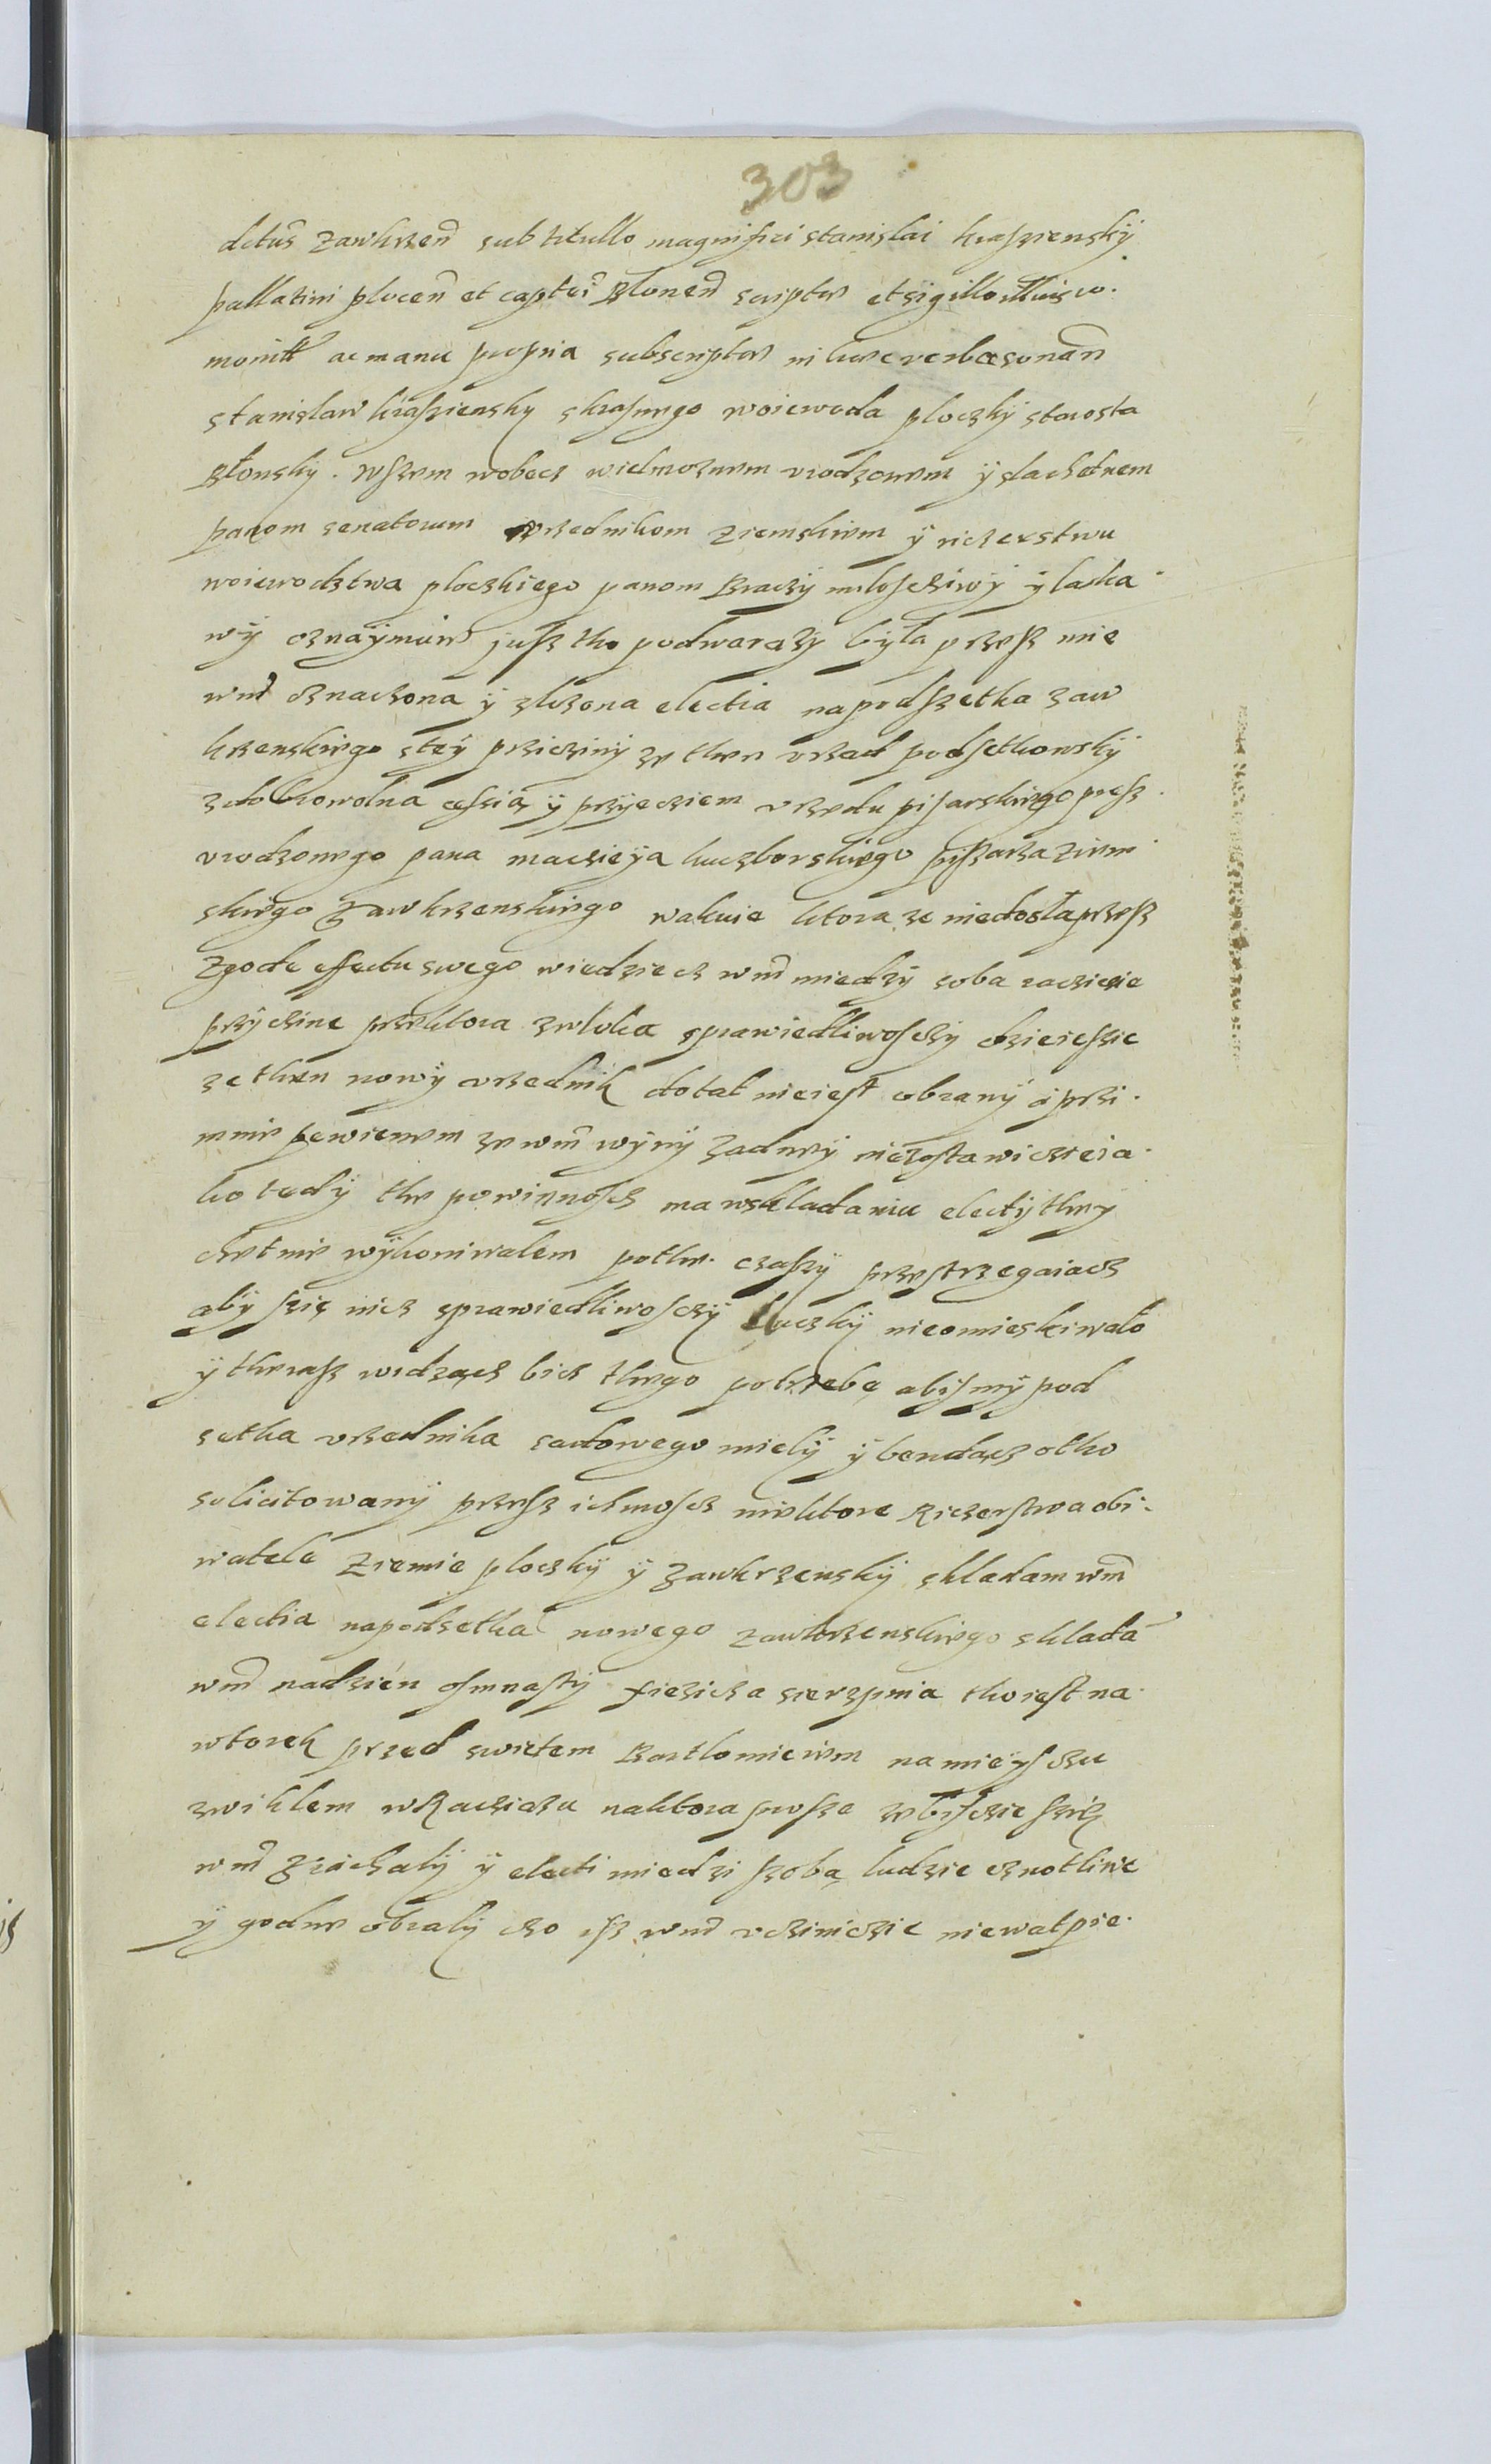 303
dctus zawkrzen̄ sub titullo magnifici stanislai kraszienskÿ
pallatini plocen̄ et captei błonen̄ scriptas et sÿgillo illius co.
monitt ac manu propria subscriptas in haec verba sonan̄
stanislaw krasziensky skrasnego woiewoda ploczkÿ starosta
Błonsky. Wszem wobecz wielmoznem vrodzonem ÿ slachetnem
panom senatorum vrzednikom ziemskiem ÿ riczerstwu
woiewodztwa ploczkiego panom Braczÿ miłosciwÿ ÿ laska
wÿ oznaÿmuie jusz tho podwarazÿ bÿła przesz mie
wm̄ oznaczona ÿ zlozona electia napodszetka zaw
krzenskiego steÿ prziczinÿ ze then vrzad podsetkowskÿ
zdobrowolna cessią ÿ przÿeciem vrzedu pisarskiego przesz
vrodzonego pana macieÿa kuczborskiego piszarza ziem
skiego zawkrzenskiego wakuie ktora ze niedosła przesz
zgode effectu swego wiedziecz wm̄ miedzÿ soba raczicie
przÿczine przektora zwloka sprawiedliwosczÿ dzieieszie
ze then nowÿ vrzednik dotat nieiest obranÿ ÿ przi
mnie pewienem ze wm̄ wÿnÿ zadneÿ niezostawiczie ia
ko tedÿ the powinnoscz ma wskladaniu electÿ theÿ
chetnie wÿkoniwalem pothe czaszÿ przestrzegaiacz
abÿ szię nicz sprawiedliwosczÿ luczkÿ nieomieskiwało
ÿ theraz widzącz bicz thego potrzebę abismÿ pod
setka vrzednika sadowego mielÿ ÿ bendącz otho
solicitowanÿ przesz ichmoscz niektore Riczerstwa obi
watele ziemie ploczkÿ ÿ zawkrzenskÿ skladam wm̄
electia napodsetka nowego zawkrzenskiego sklada
wm̄ nadzień osmnastÿ xiezicza sierzpnia tho iest na
wtorek przed swietem Bartlomieiem na mieÿsczu
zwiklem wRacziązu naktora prosze zebiscie szię
wm̄ ziachalÿ ÿ electi miedzi szobą ludzie cznotliwe
ÿ godne obralÿ czo isz wm̄ vcziniczie niewatpie.